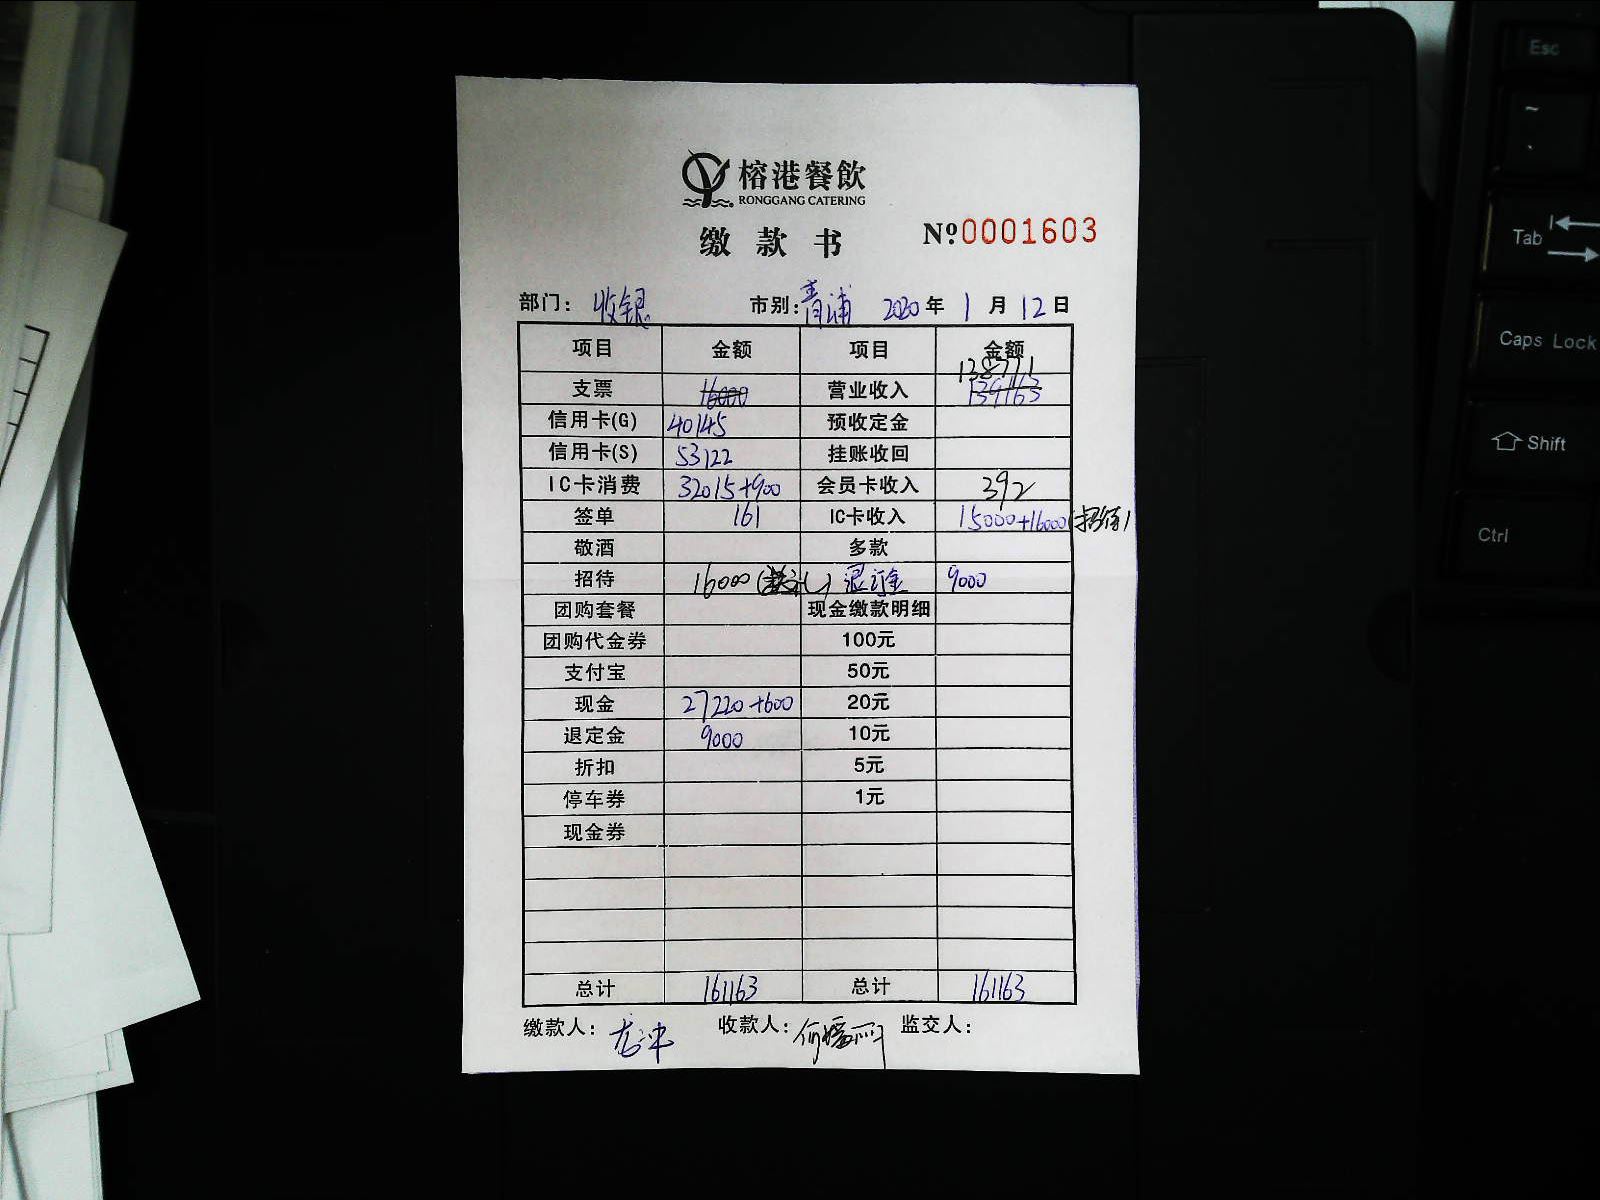 榕港餐飲
RONGGANG CATERING
缴款书
Nº0001603
部门： 收银 市别：青浦 2020年1月12日
项目 金额 项目 金额
138771
支票 16000 营业收入 139163
信用卡(G) 40145 预收定金
信用卡(S) 53122 挂账收回
IC卡消费 32015+900 会员卡收入 392
签单 161 IC卡收入 15000+16000(招待)
敬酒 多款
招待 16000 退订金 9000
团购套餐 现金缴款明细
团购代金券 100元
支付宝 50元
现金 27220+600 20元
退定金 9000 10元
折扣 5元
停车券 1元
现金券
总计 161163 总计 161163
缴款人： 收款人： 监交人：
Esc
~
Tab
Caps Lock
Shift
Ctrl